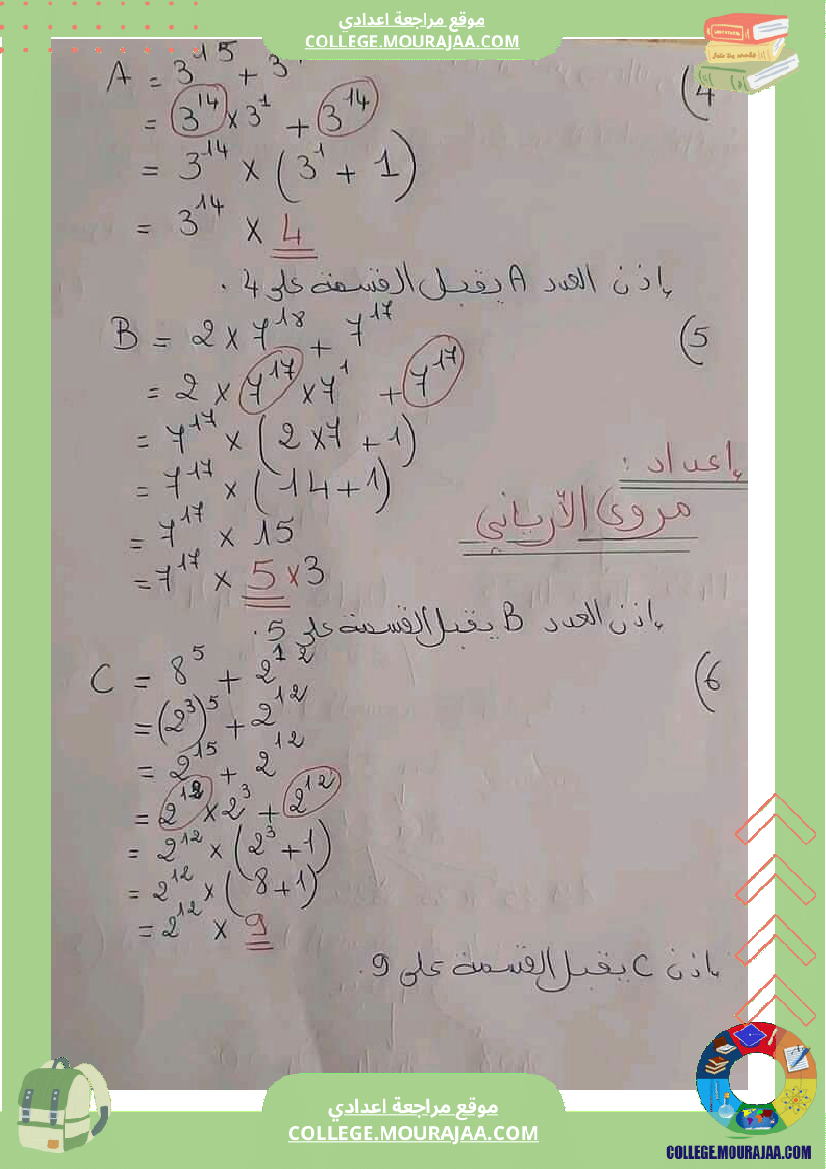 موقع مراجعة اعدادي
COLLEGE.MOURAJAA.COM
4) A = 3^15 + 3
= 3^14 × 3^1 + 3^14
= 3^14 × (3^1 + 1)
= 3^14 × 4
إذن العدد A يقبل القسمة على 4.
5) B = 2 × 7^18 + 7^17
= 2 × 7^17 × 7^1 + 7^17
= 7^17 × (2 × 7 + 1)
= 7^17 × (14 + 1)
= 7^17 × 15
= 7^17 × 5 × 3
إعداد :
مروى الأرياني
إذن العدد B يقبل القسمة على 5.
6) C = 8^5 + 2^12
= (2^3)^5 + 2^12
= 2^15 + 2^12
= 2^12 × 2^3 + 2^12
= 2^12 × (2^3 + 1)
= 2^12 × (8 + 1)
= 2^12 × 9
إذن C يقبل القسمة على 9.
موقع مراجعة اعدادي
COLLEGE.MOURAJAA.COM
COLLEGE.MOURAJAA.COM